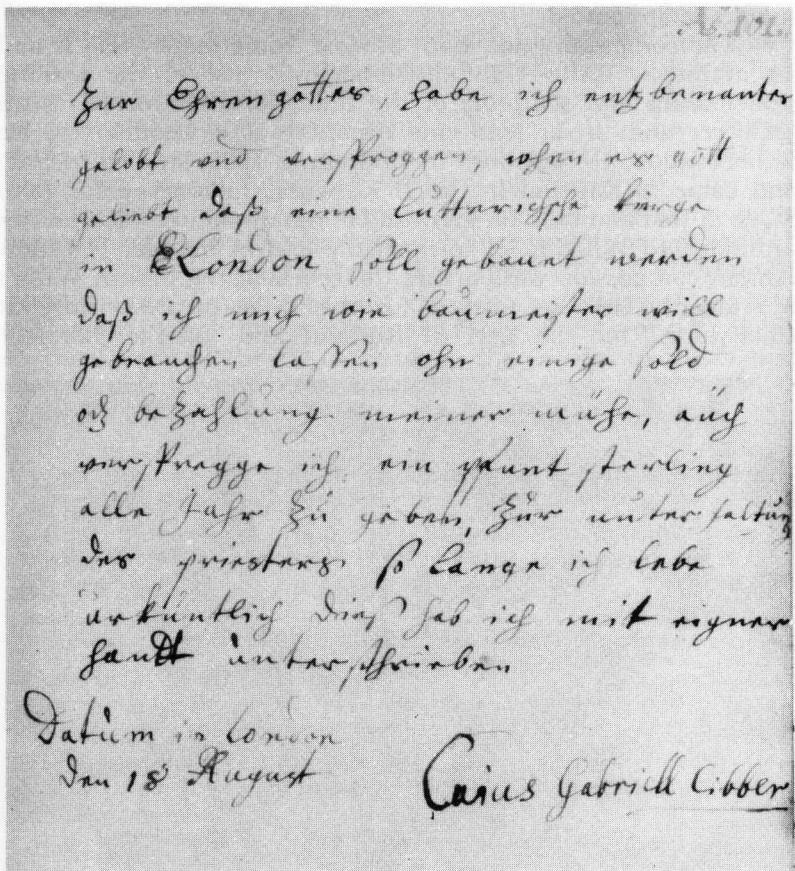 Zur Ehren gottes, habe ich entzbenanter
gelobt vnd versproggen, when es gott
geliebt daß eine lutterichsche kirge
in London soll gebauet werden
daß ich mich wie baumeister will
gebrauchen lassen ohn einige sold
odz bezahlung meiner mühe, auch
verspregge ich ein pfunt sterling
alle Jahr zu geben, zur unterhaltung
des priesters so lange ich lebe
urkuntlich dieß hab ich mit eigner
handt unterschrieben
Datum in London
den 18 August
Caius Gabriell Cibber